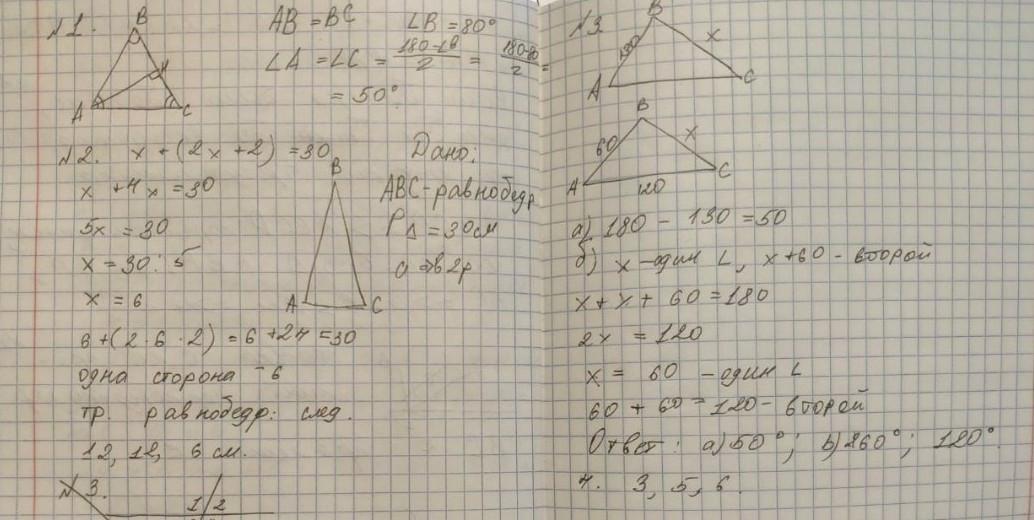 №1.
B
A
H
C
AB = BC ∠B = 80°
∠A = ∠C = (180-∠B)/2 = (180-80)/2 =
= 50°
№2. x + (2x · 2) = 30
x + 4x = 30
5x = 30
x = 30 : 5
x = 6
6 + (2 · 6 · 2) = 6 + 24 = 30
одна сторона - 6
тр. равнобедр. след.
12, 12, 6 см.
Дано:
ABC - равнобедр
P△ = 30 см
в 2р
B
A
C
№3.
1/2
№3.
B
A
C
130
x
B
A
C
60
x
120
а) 180 - 130 = 50
б) x - один ∠, x + 60 - второй
x + x + 60 = 180
2x = 120
x = 60 - один ∠
60 + 60 = 120 - второй
Ответ: а) 50°; б) 60°; 120°.
4. 3, 5, 6.